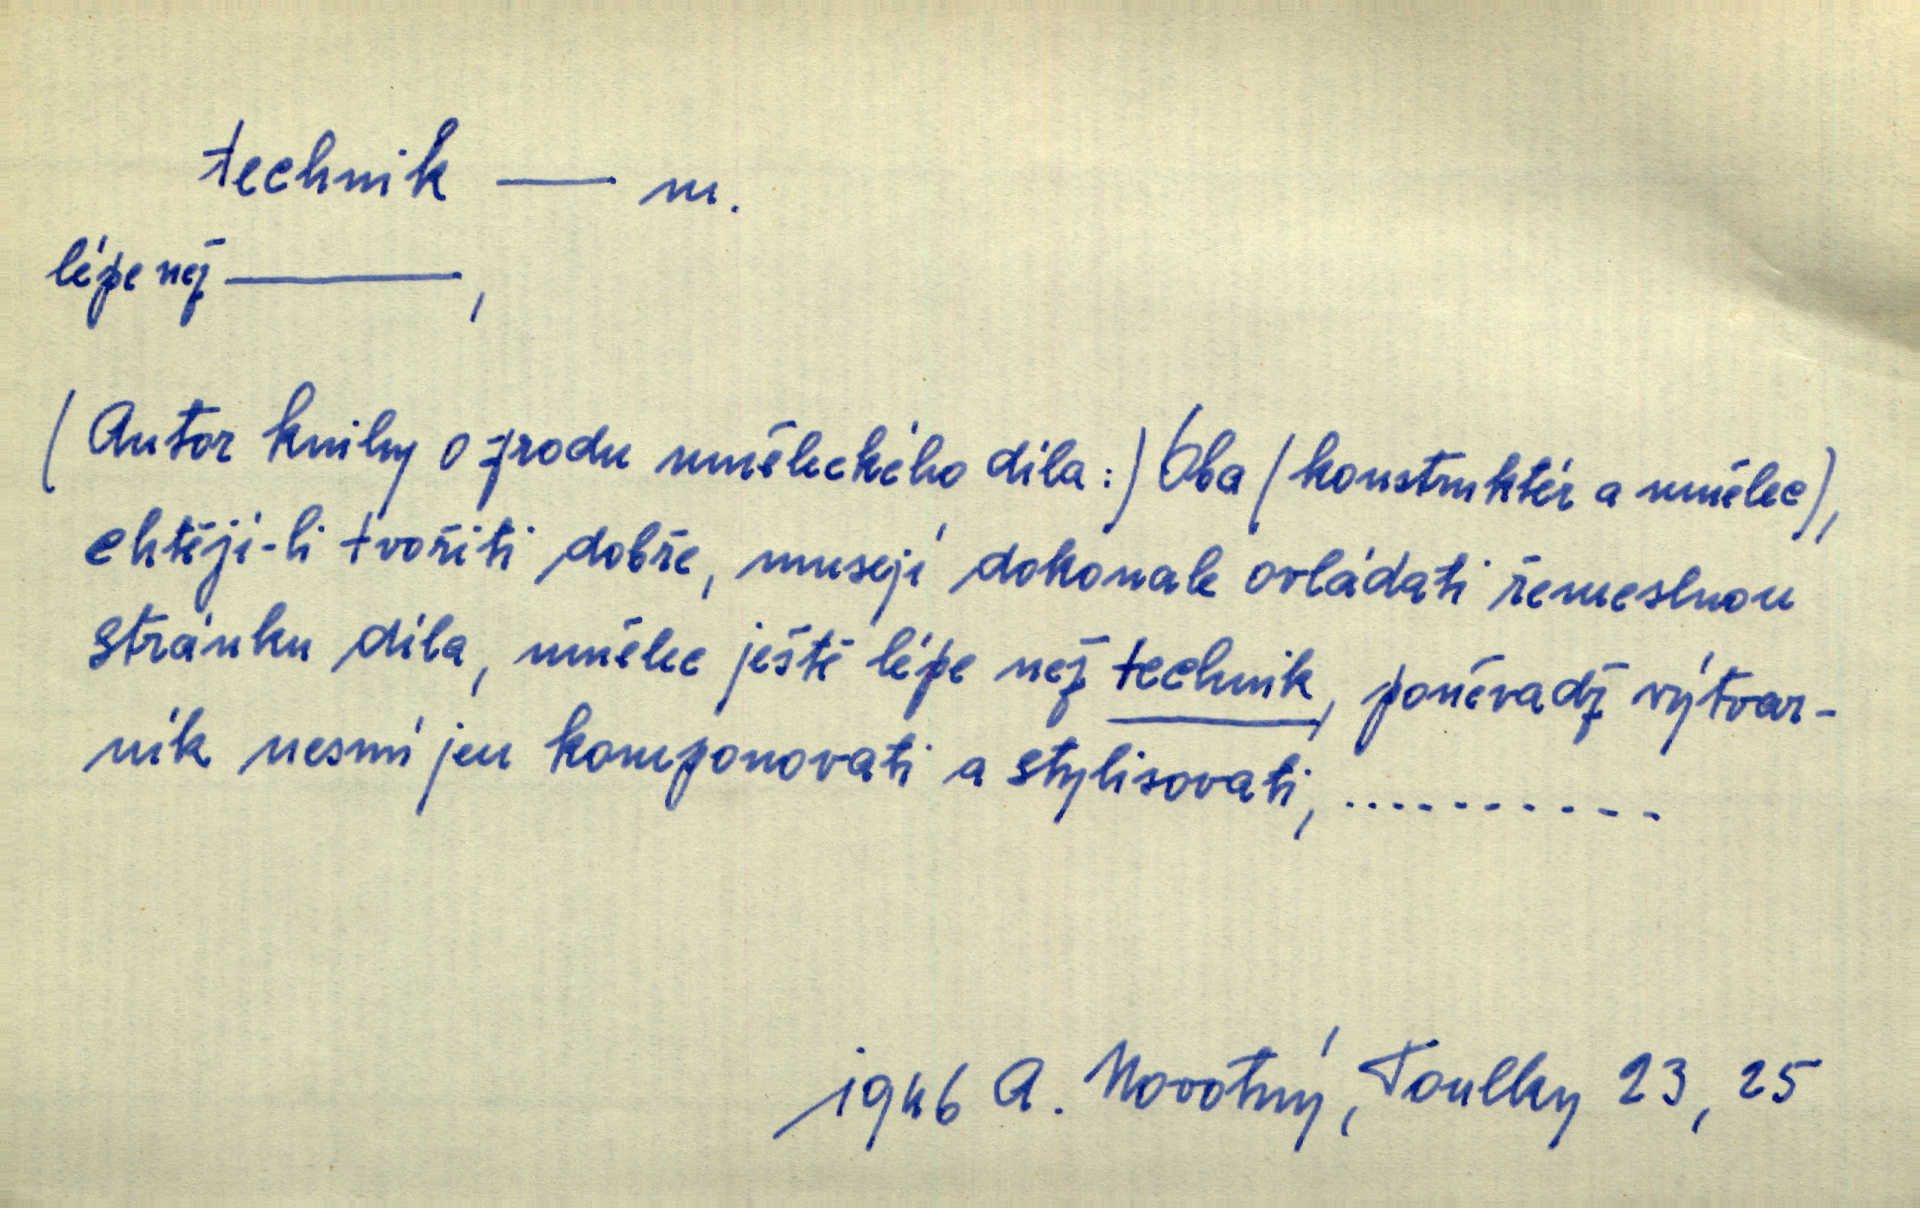 technik — m.
lépe než ———,
(Autor knihy O zrodu uměleckého díla:) Oba (konstruktér a umělec),
chtějí-li tvořiti dobře, musejí dokonale ovládati řemeslnou
stránku díla, umělec ještě lépe než technik, poněvadž výtvar-
ník nesmí jen komponovati a stylisovati, ...........
1946 A. Novotný, Toulky 23, 25